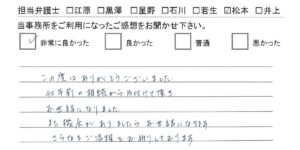 担当弁護士 □江原 □黒澤 □星野 □石川 □若生 ☑松本 □井上
当事務所をご利用になったご感想をお聞かせ下さい。
☑ 非常に良かった □ 良かった □ 普通 □ 悪かった
この度はありがとうございました。
40年前の相続から片付けて頂き
お世話になりました。
また機会がありましたらお世話になります
さらなるご活躍をお祈りしております